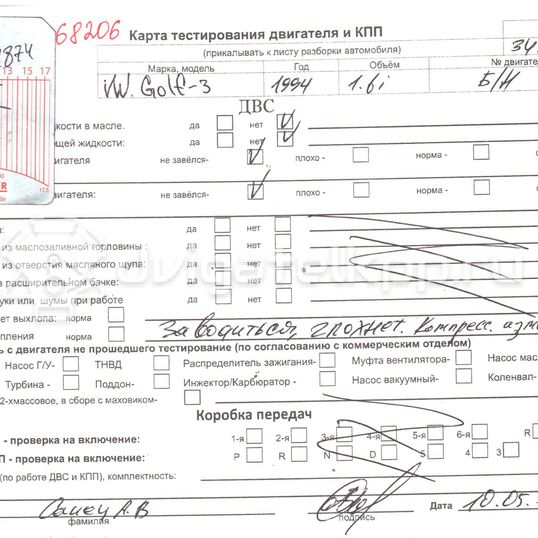 68206
Карта тестирования двигателя и КПП
(прикалывать к листу разборки автомобиля)
Марка, модель Год Объём № двигате
Golf-3 1994 1.6i Б/Н
874
13 15 17
ДВС
кости в масле. да нет
ющей жидкости: да нет
вигателя не завёлся- плохо - норма -
вигателя: не завёлся- плохо - норма -
да нет
из маслозаливной горловины: да нет
из отверстия масляного щупа: да нет
в расширительном бачке: да нет
уки или шумы при работе да нет
ет выхлопа: норма
пления норма
Заводиться, глохнет. Компресс. изм
ь с двигателя не прошедшего тестирование (по согласованию с коммерческим отделом)
Насос Г/У- ТНВД Распределитель зажигания- Муфта вентилятора- Насос мас
Турбина - Поддон- Инжектор/Карбюратор - Насос вакуумный- Коленвал-
2-хмассовое, в сборе с маховиком-
Коробка передач
- проверка на включение: 1-я 2-я 3-я 4-я 5-я 6-я R
П - проверка на включение: P R N D 5 4 3
(по работе ДВС и КПП), комплектность:
А.В 10.05.
фамилия подпись Дата